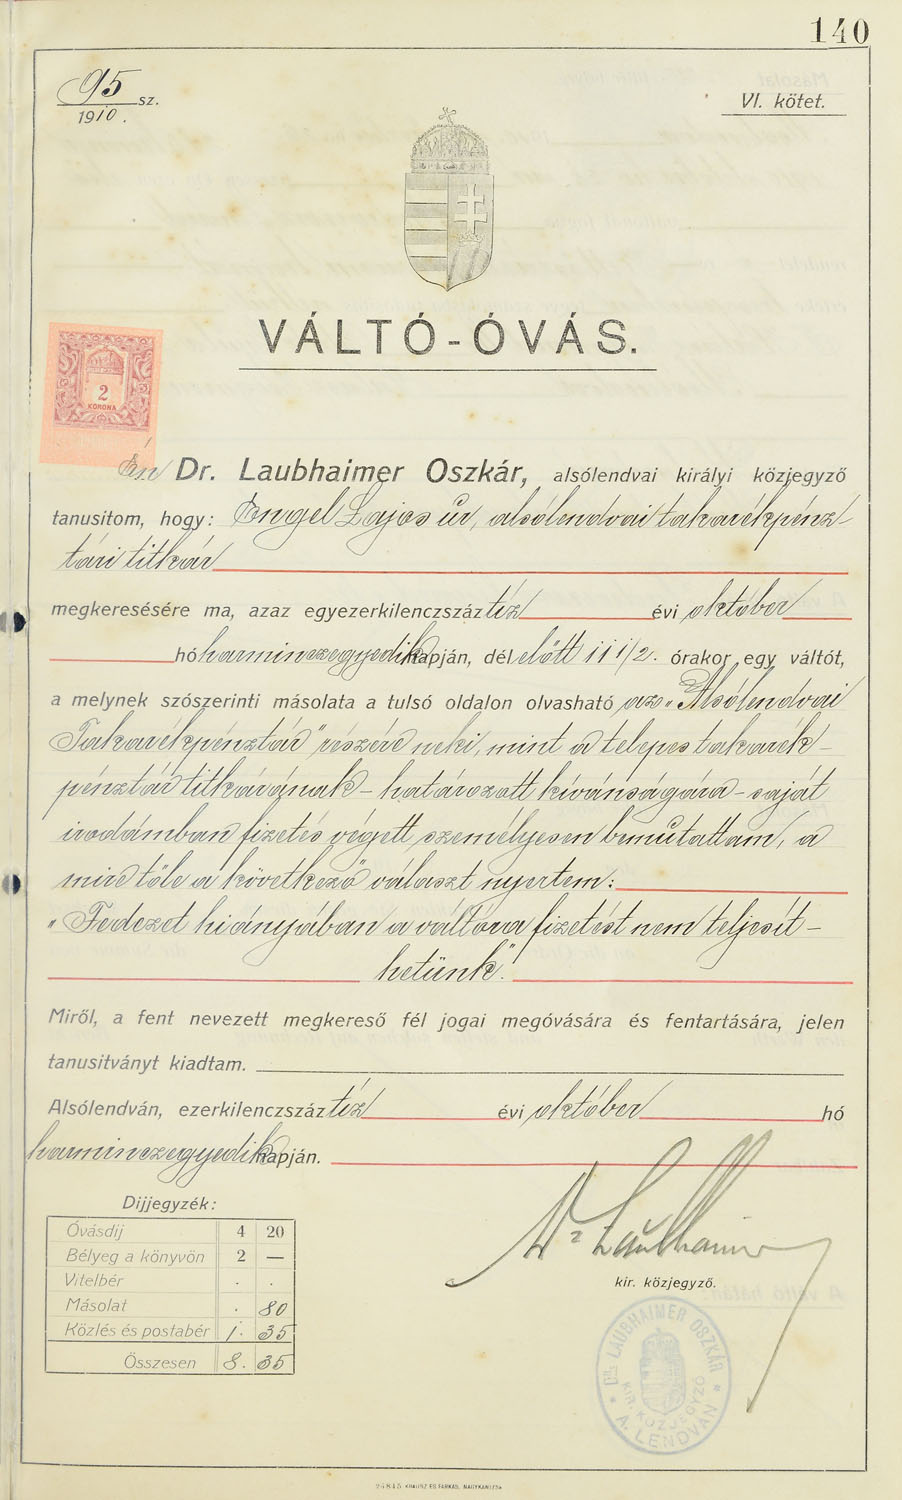 140
95 sz.
1910.
VI. kötet.
VÁLTÓ-ÓVÁS.
2
KORONA
Én Dr. Laubhaimer Oszkár, alsólendvai királyi közjegyző
tanusitom, hogy: Engel Lajos úr, alsólendvai takarékpénz-
tári titkár
megkeresésére ma, azaz egyezerkilenczszáz tíz évi október
hó harminczegyedik napján, dél előtt 11 1/2. órakor egy váltót,
a melynek szószerinti másolata a tulsó oldalon olvasható az „Alsólendvai
Takarékpénztár" részére neki, mint a telepes takarék-
pénztár titkárának - határozott kívánságára - saját
irodámban fizetés végett személyesen bemutattam, a
mire tőle a következő választ nyertem:
„Fedezet hiányában a váltóra fizetést nem teljesít-
hetünk".
Miről, a fent nevezett megkereső fél jogai megóvására és fentartására, jelen
tanusitványt kiadtam.
Alsólendván, ezerkilenczszáz tíz évi október hó
harminczegyedik napján.
Dijjegyzék:
Óvásdij 4 20
Bélyeg a könyvön 2 —
Vitelbér . .
Másolat . 80
Közlés és postabér 1. 35
Összesen 8. 35
Dr Laubhaimer
kir. közjegyző.
DR. LAUBHAIMER OSZKÁR
KIR. KÖZJEGYZŐ
* A. LENDVÁN *
26845 KRAUSZ ÉS FARKAS, NAGYKANIZSA